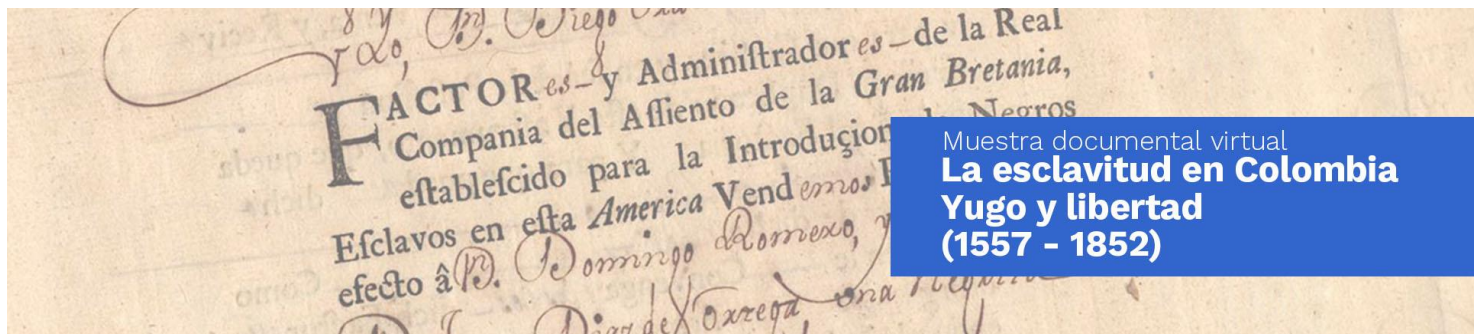 y D.ⁿ Diego
FACTORes - y Adminiſtradores - de la Real
Compania del Aſſiento de la Gran Bretania,
eſtableſcido para la Introduçion de Negros
Eſclavos en eſta America Vendemos
efecto â D. Domingo Romexo, y
una Negrita
Muestra documental virtual
La esclavitud en Colombia
Yugo y libertad
(1557 - 1852)